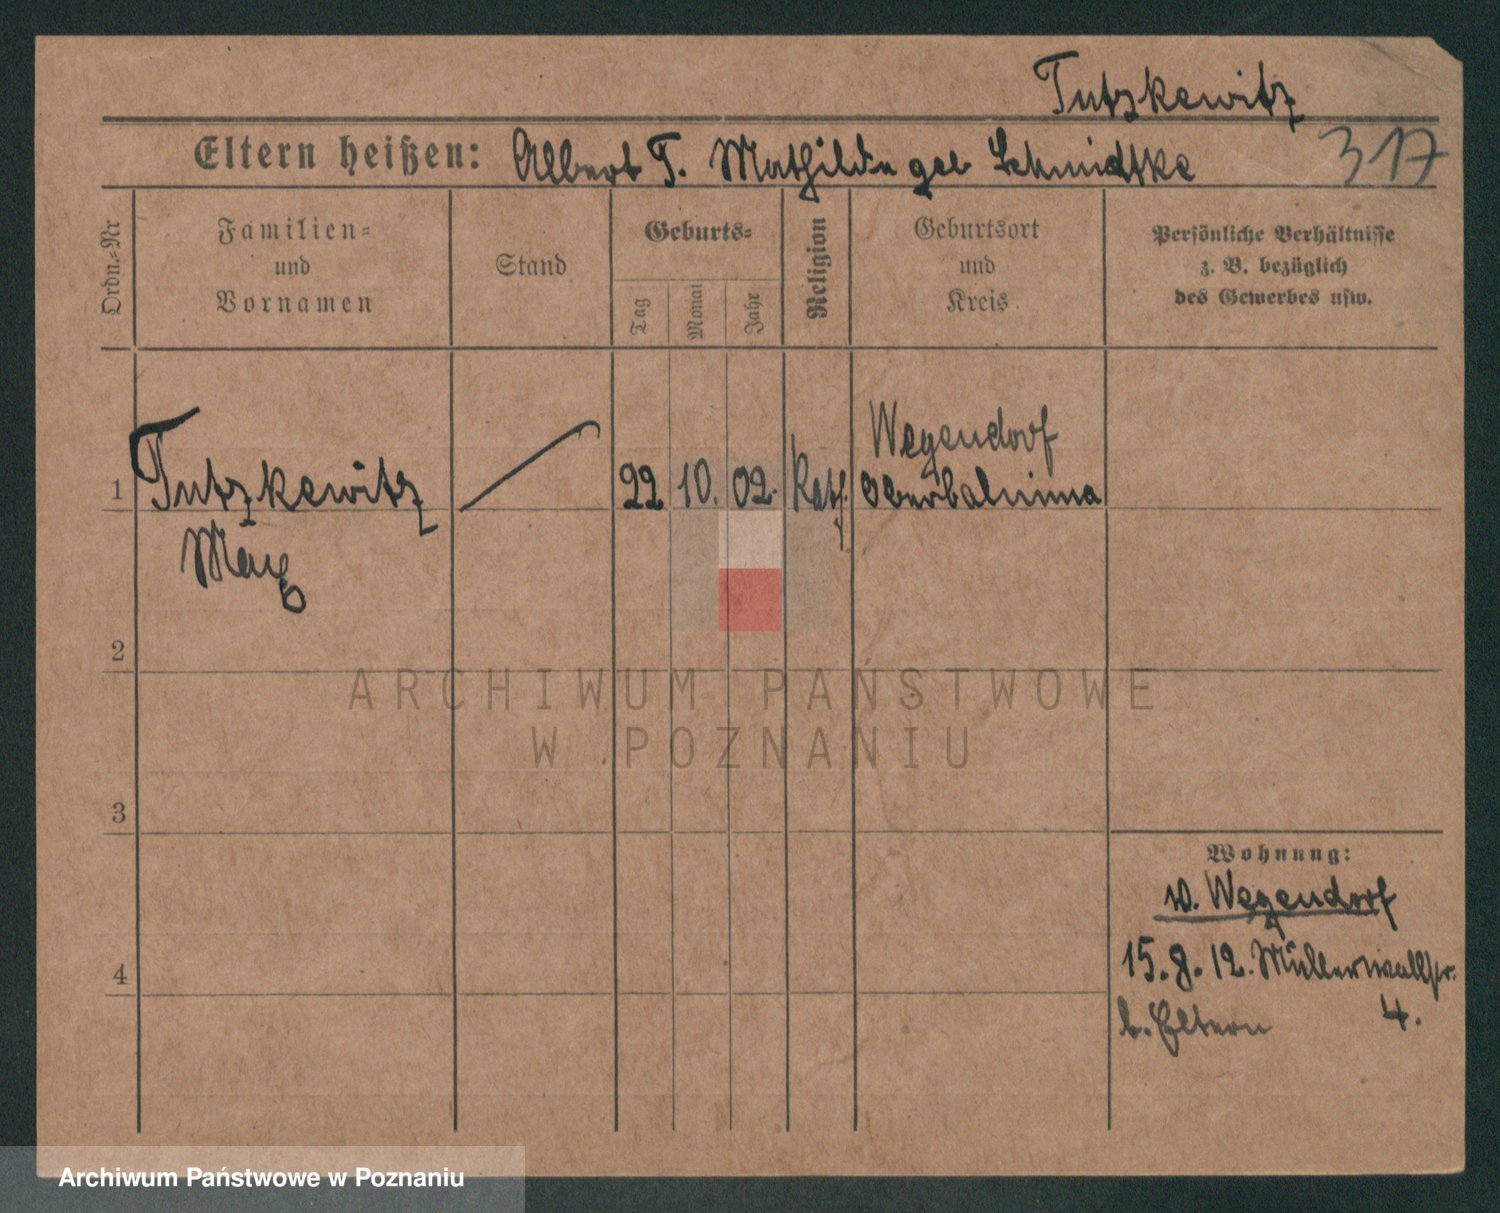 Tutzkewitz
Eltern heißen: Albert T. Mathilde geb Schmidtke 317
Ordn.-Nr
Familien-
und
Vornamen
Stand
Geburts-
Tag
Monat
Jahr
Religion
Geburtsort
und
Kreis
Persönliche Verhältnisse
z. B. bezüglich
des Gewerbes usw.
Wegendorf
1 Tutzkewitz 22 10. 02. Kath.
Max
2
3
4
Wohnung:
v. Wegendorf
15. 8. 12. Müllerwallstr.
b. Eltern 4.
ARCHIWUM PAŃSTWOWE
W POZNANIU
Archiwum Państwowe w Poznaniu